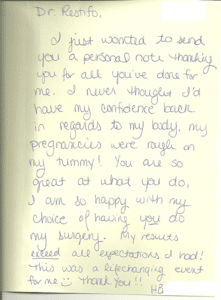 Dr. Restifo,
I just wanted to send
you a personal note thanking
you for all you've done for
me. I never thought I'd
have my confidence back
in regards to my body, my
pregnancies were rough on
my tummy! You are so
great at what you do,
I am so happy with my
choice of having you do
my surgery. My results
exceed all expectations I had!
This was a lifechanging event
for me ☺ Thank you!!
HB